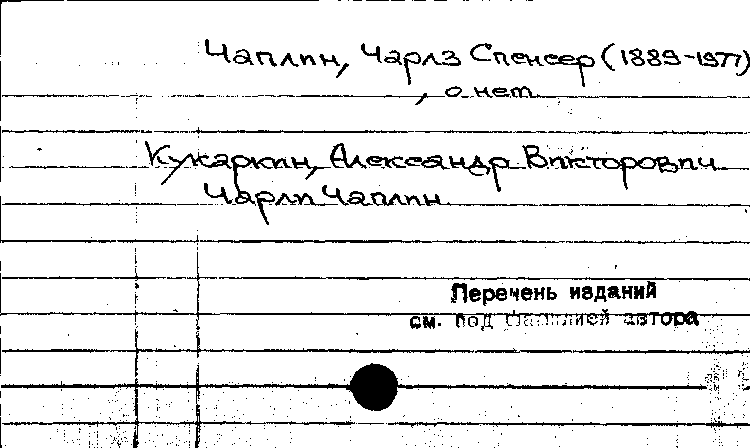 Чаплин, Чарлз Спенсер (1889-1977)
, о нем
Кукаркин, Александр Викторович
Чарли Чаплин
Перечень изданий
см. под фамилией автора